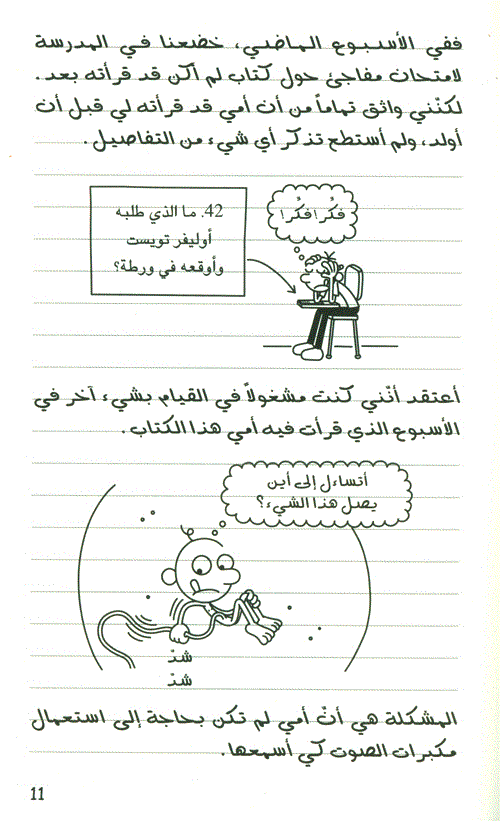 ففي الأسبوع الماضي، خضعنا في المدرسة
لامتحان مفاجئ حول كتاب لم أكن قد قرأته بعد.
لكنّني واثق تماماً من أن أمي قد قرأته لي قبل أن
أولد، ولم أستطع تذكر أي شيء من التفاصيل.
فكّر! فكّر!
42. ما الذي طلبه
أوليفر تويست
وأوقعه في ورطة؟
أعتقد أنّني كنت مشغولاً في القيام بشيء آخر في
الأسبوع الذي قرأت فيه أمي هذا الكتاب.
أتساءل إلى أين
يصل هذا الشيء؟
شدّ
شدّ
المشكلة هي أنّ أمي لم تكن بحاجة إلى استعمال
مكبرات الصوت كي أسمعها.
11